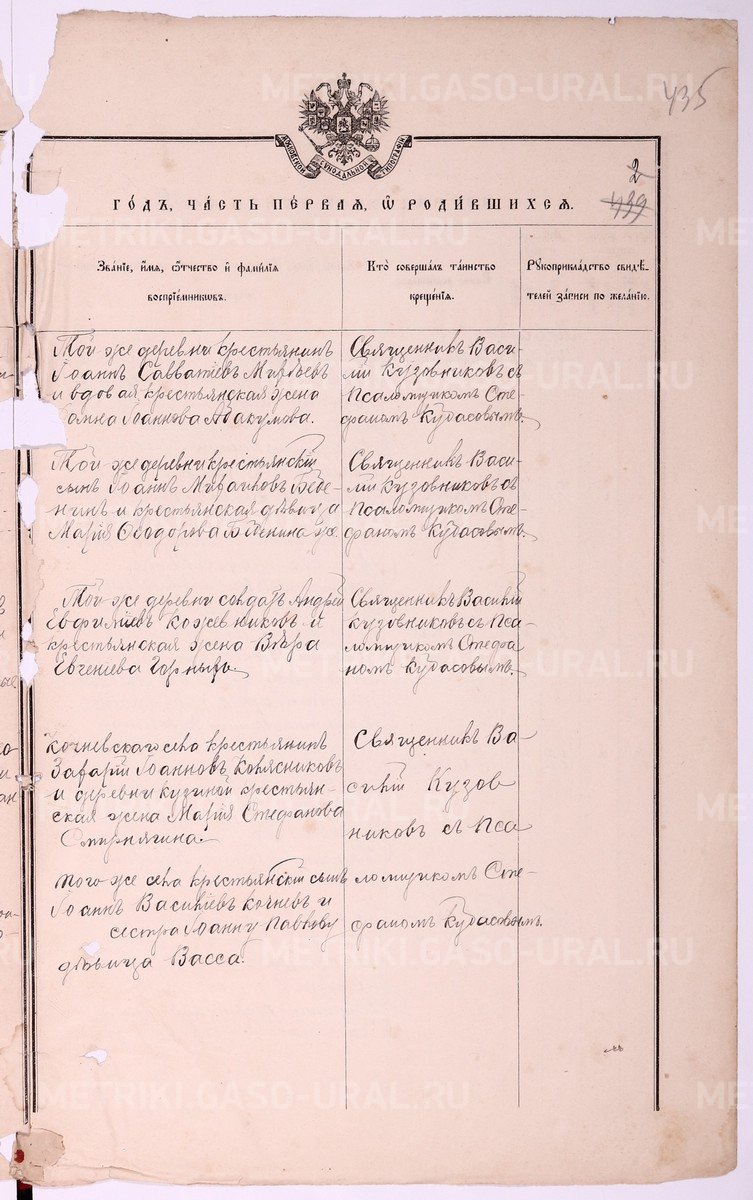 METRIKI.GASO-URAL.RU
435
МОСКОВСКОЙ СѴНОДАЛЬНОЙ ТИПОГРАФІИ
2
439
ГО́ДЪ, ЧА́СТЬ ПЕ́РВАЯ, Ѿ РОДИ́ВШИХСѦ.
Зва́ніе, и҆́мѧ, ѻ҆́тчество и҆ фами́лїѧ
воспрїе́мникѡвъ.
Кто̀ соверша́лъ та́инство
креще́нїѧ.
Рꙋкоприкла́дство свидѣ́-
телей за́писи по жела́нїю.
Той же деревни крестьянинъ
Іоаннъ Савватіевъ
и вдовая, крестьянская жена
Іоаннова Абакумова.
Священникъ Васи-
лій Кузовниковъ съ
Псаломщикомъ Сте-
фаномъ Кудасовымъ.
Той же деревни крестьянскій
сынъ Іоаннъ
и крестьянская дѣвица
Марія Ѳеодорова же.
Священникъ Васи-
лій Кузовниковъ съ
Псаломщикомъ Сте-
фаномъ Кудасовымъ.
Той же деревни солдатъ Андрей
Евфиміевъ Кожевниковъ и
крестьянская жена Вѣра
Евгеніева Горныхъ.
Священникъ Василій
Кузовниковъ съ Пса-
ломщикомъ Стефа-
номъ Кудасовымъ.
Кочневскаго села крестьянинъ
Захарій Іоанновъ Колясниковъ
и деревни Кузиной крестьян-
ская жена Марія Стефанова
Смирнягина.
Священникъ Ва-
силій Кузов
никовъ съ Пса
Того же села крестьянскій сынъ
Іоаннъ Василіевъ Кочневъ и
сестра Іоанну Павлову
дѣвица Васса.
ломщикомъ Сте-
фаномъ Кудасовымъ.